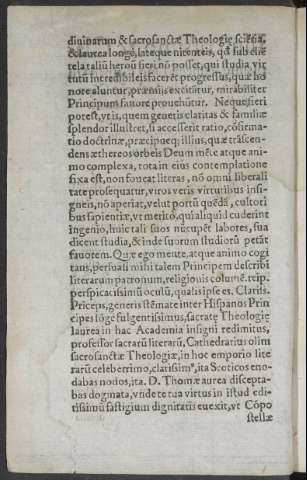 diuinarum & sacrosanctæ Theologię sciẽtia,
& laurea longè, lateque nitenteis, qđ sub cliẽ
tela taliũ heroũ fieri nõ posset, qui studia, vir
tutũ incredibileis facerẽt progressus, quæ ho
nore aluntur, præmiis excitãtur, mirabiliter
Principum fauore prouehũtur. Neque fieri
potest, vt is, quem generis claritas & familiæ
splendor illustret, si accesserit ratio, cõfirma-
tio doctrinæ, præcipueq; illius, quæ trãscen-
dens æthereos orbeis Deum mẽte atque ani-
mo complexa, tota in eius contemplatione
fixa est, non foueat literas, nõ omni liberali
tate prosequatur, viros veris virtutibus insi-
gneis, nõ aperiat, velut portũ quẽdã, cultori
bus sapientiæ, vt meritò, qui aliquid cuderint
ingenio, huic tali suos nũcupẽt labores, sua
dicent studia, & inde suorum studiorũ petãt
fauorem. Quæ ego mente, atque animo cogi
tans, persuasi mihi talem Principem describi
literarum patronum, religionis columẽ, reip.
perspicacissimũ oculũ, qualis ipse es, Clariss.
Priceps, generis stẽmate inter Hispanos Prin
cipes lõgè fulgentissimus, sacratę Theologię
laurea in hac Academia insigni redimitus,
professor sacrarũ literarũ, Cathedratius olim
sacrosanctæ Theologiæ, in hoc emporio lite
rarũ celeberrimo, clarissim⁹, ita Scoticos eno-
dabas nodos, ita D. Thomæ aurea discepta-
bas dogmata, vnde te tua virtus in istud edi-
tissimũ fastigium dignitatis euexit, vt Cõpo
stellæ